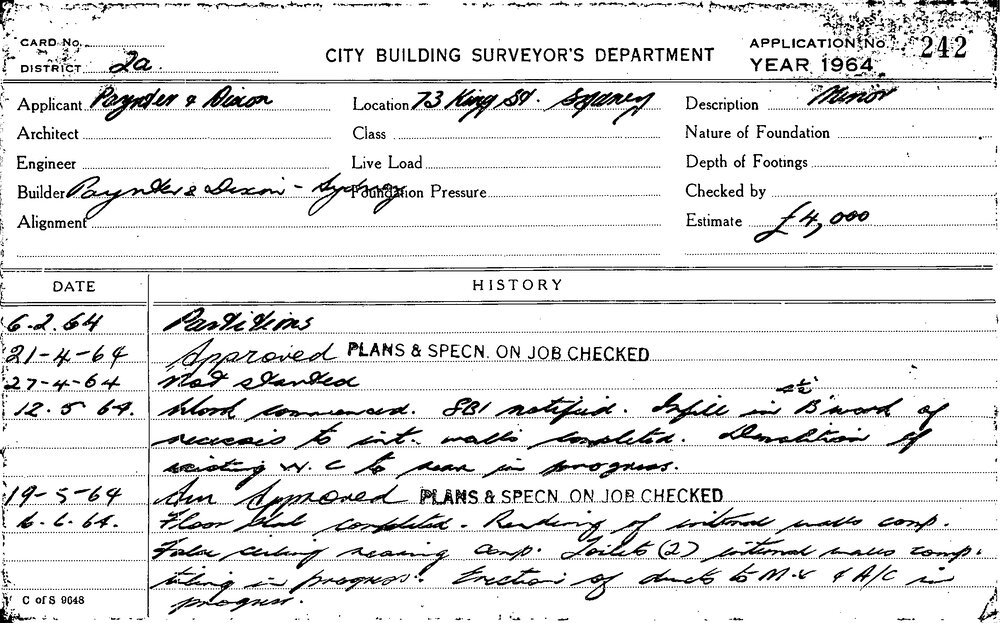 CARD No.
DISTRICT 2a
CITY BUILDING SURVEYOR'S DEPARTMENT
APPLICATION No. 242
YEAR 1964
Applicant Paynter & Dixon
Location 73 King St. Sydney
Description Minor
Architect
Class
Nature of Foundation
Engineer
Live Load
Depth of Footings
Builder Paynter & Dixon - Sydney
Foundation Pressure
Checked by
Alignment
Estimate £4,000
DATE HISTORY
6.2.64 Partitions
21-4-64 Approved PLANS & SPECN. ON JOB CHECKED
27-4-64 Not started
4½"
12.5.64. Work commenced. SBI notified. Infill in B'work of
recesses to int. walls completed. Demolition of
existing W.C to rear in progress.
19-5-64 Am Approved PLANS & SPECN. ON JOB CHECKED
6.6.64. Floor slab completed. Rending of internal walls comp.
False ceiling nearing comp. Toilets (2) internal walls comp.
tiling in progress. Erection of ducts to M.V & A/C in
progress.
C of S 9648